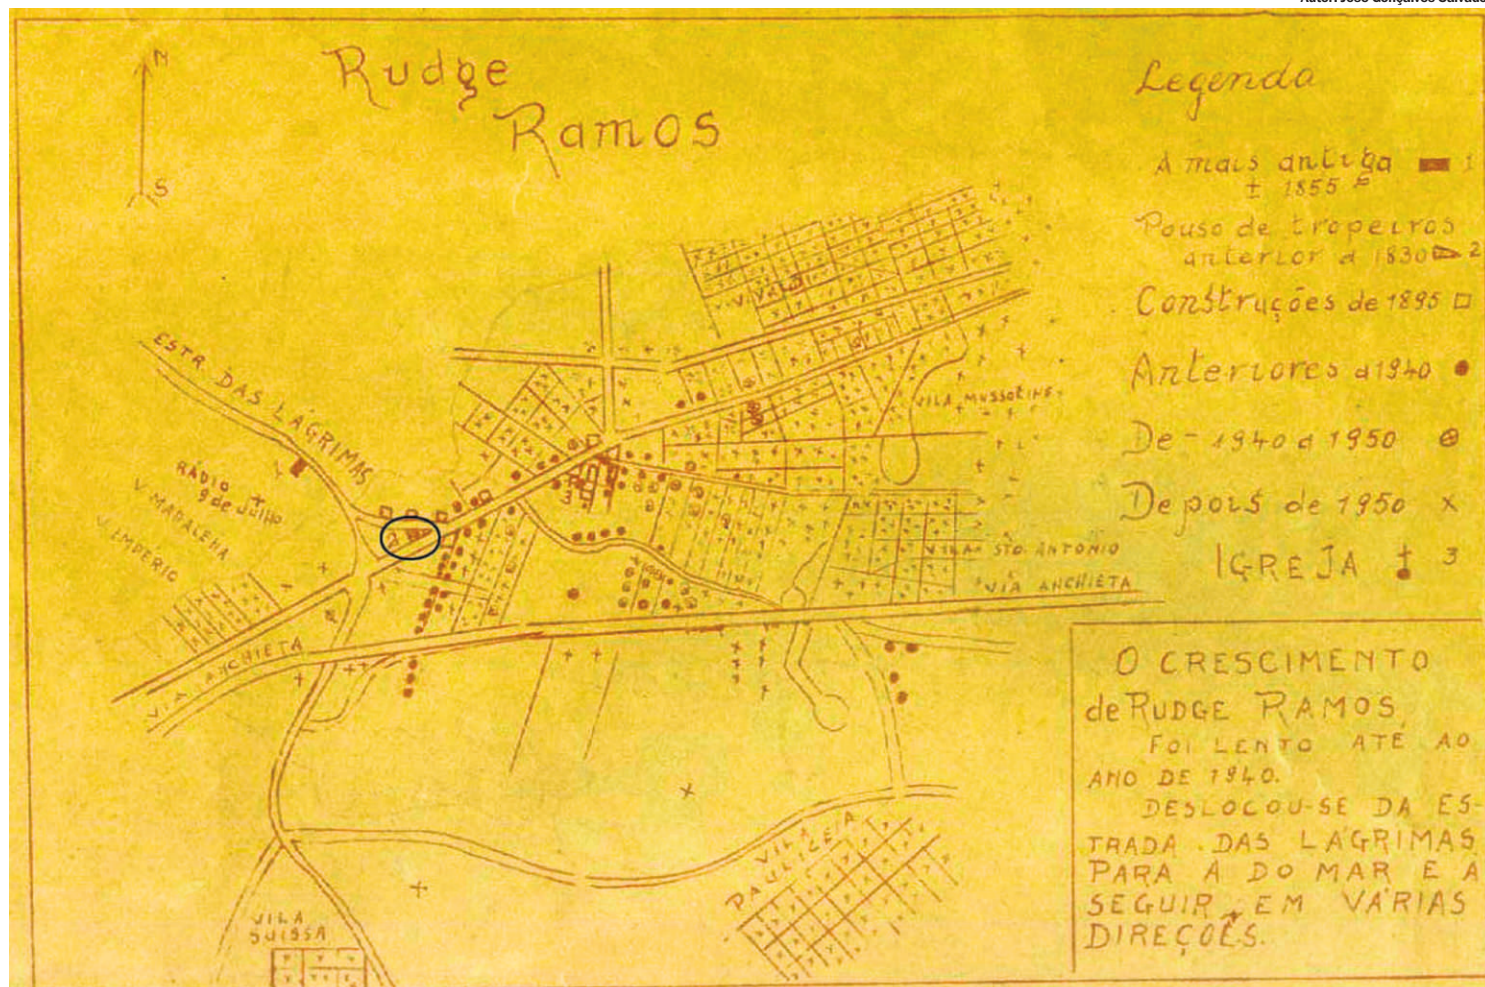 Autor: José Gonçalves Salvador
N
S
Rudge
Ramos
Legenda
A mais antiga 1
± 1855
Pouso de tropeiros
anterior a 1830 2
Construções de 1895
Anteriores a 1940
De - 1940 a 1950
Depois de 1950 x
IGREJA 3
ESTR. DAS LÁGRIMAS
1
RÁDIO
9 de Julho
V. MADALENA
V. IMPERIO
2
3
VILA MUSSOLINE
VILA STO ANTONIO
VIA ANCHIETA
VIA ANCHIETA
VILA
PAULICEIA
VILA
SUISSA
O CRESCIMENTO
de RUDGE RAMOS,
FOI LENTO ATÉ AO
ANO DE 1940.
DESLOCOU-SE DA ES-
TRADA DAS LÁGRIMAS
PARA A DO MAR E A
SEGUIR, EM VÁRIAS
DIREÇOES.